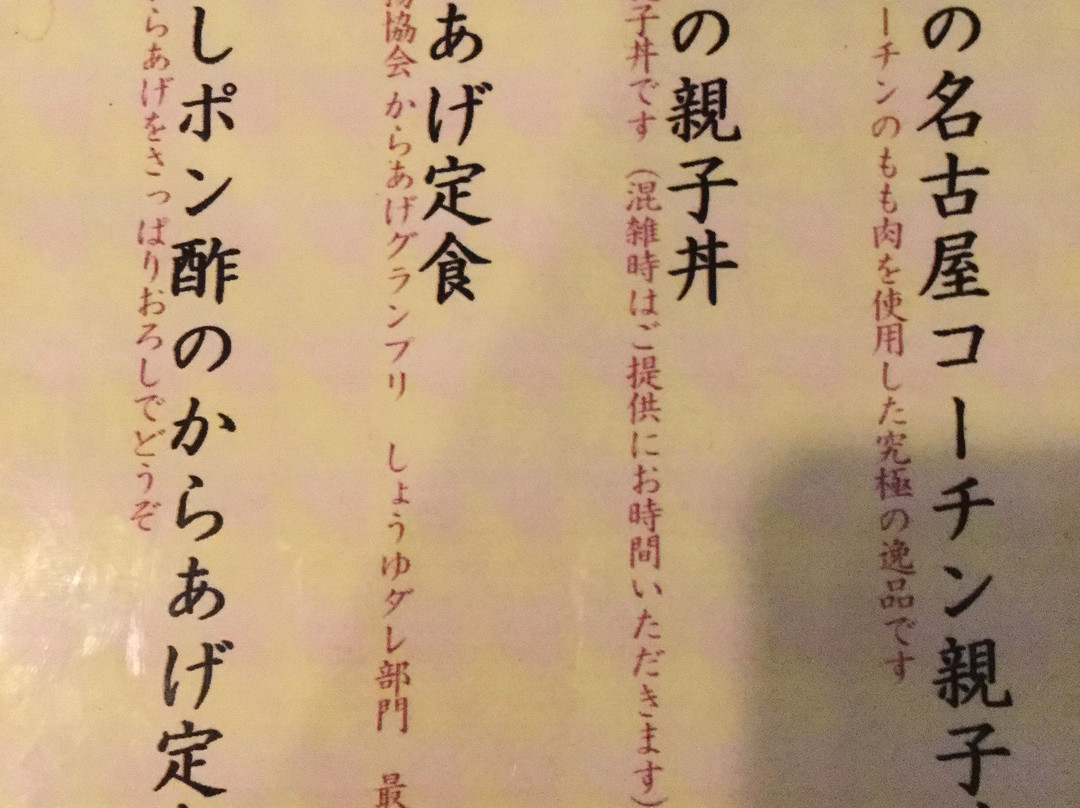 の名古屋コーチン親子
ーチンのもも肉を使用した究極の逸品です
の親子丼
子丼です（混雑時はご提供にお時間いただきます）
あげ定食
協会 からあげグランプリ しょうゆダレ部門 最
しポン酢のからあげ定
らあげをさっぱりおろしでどうぞ